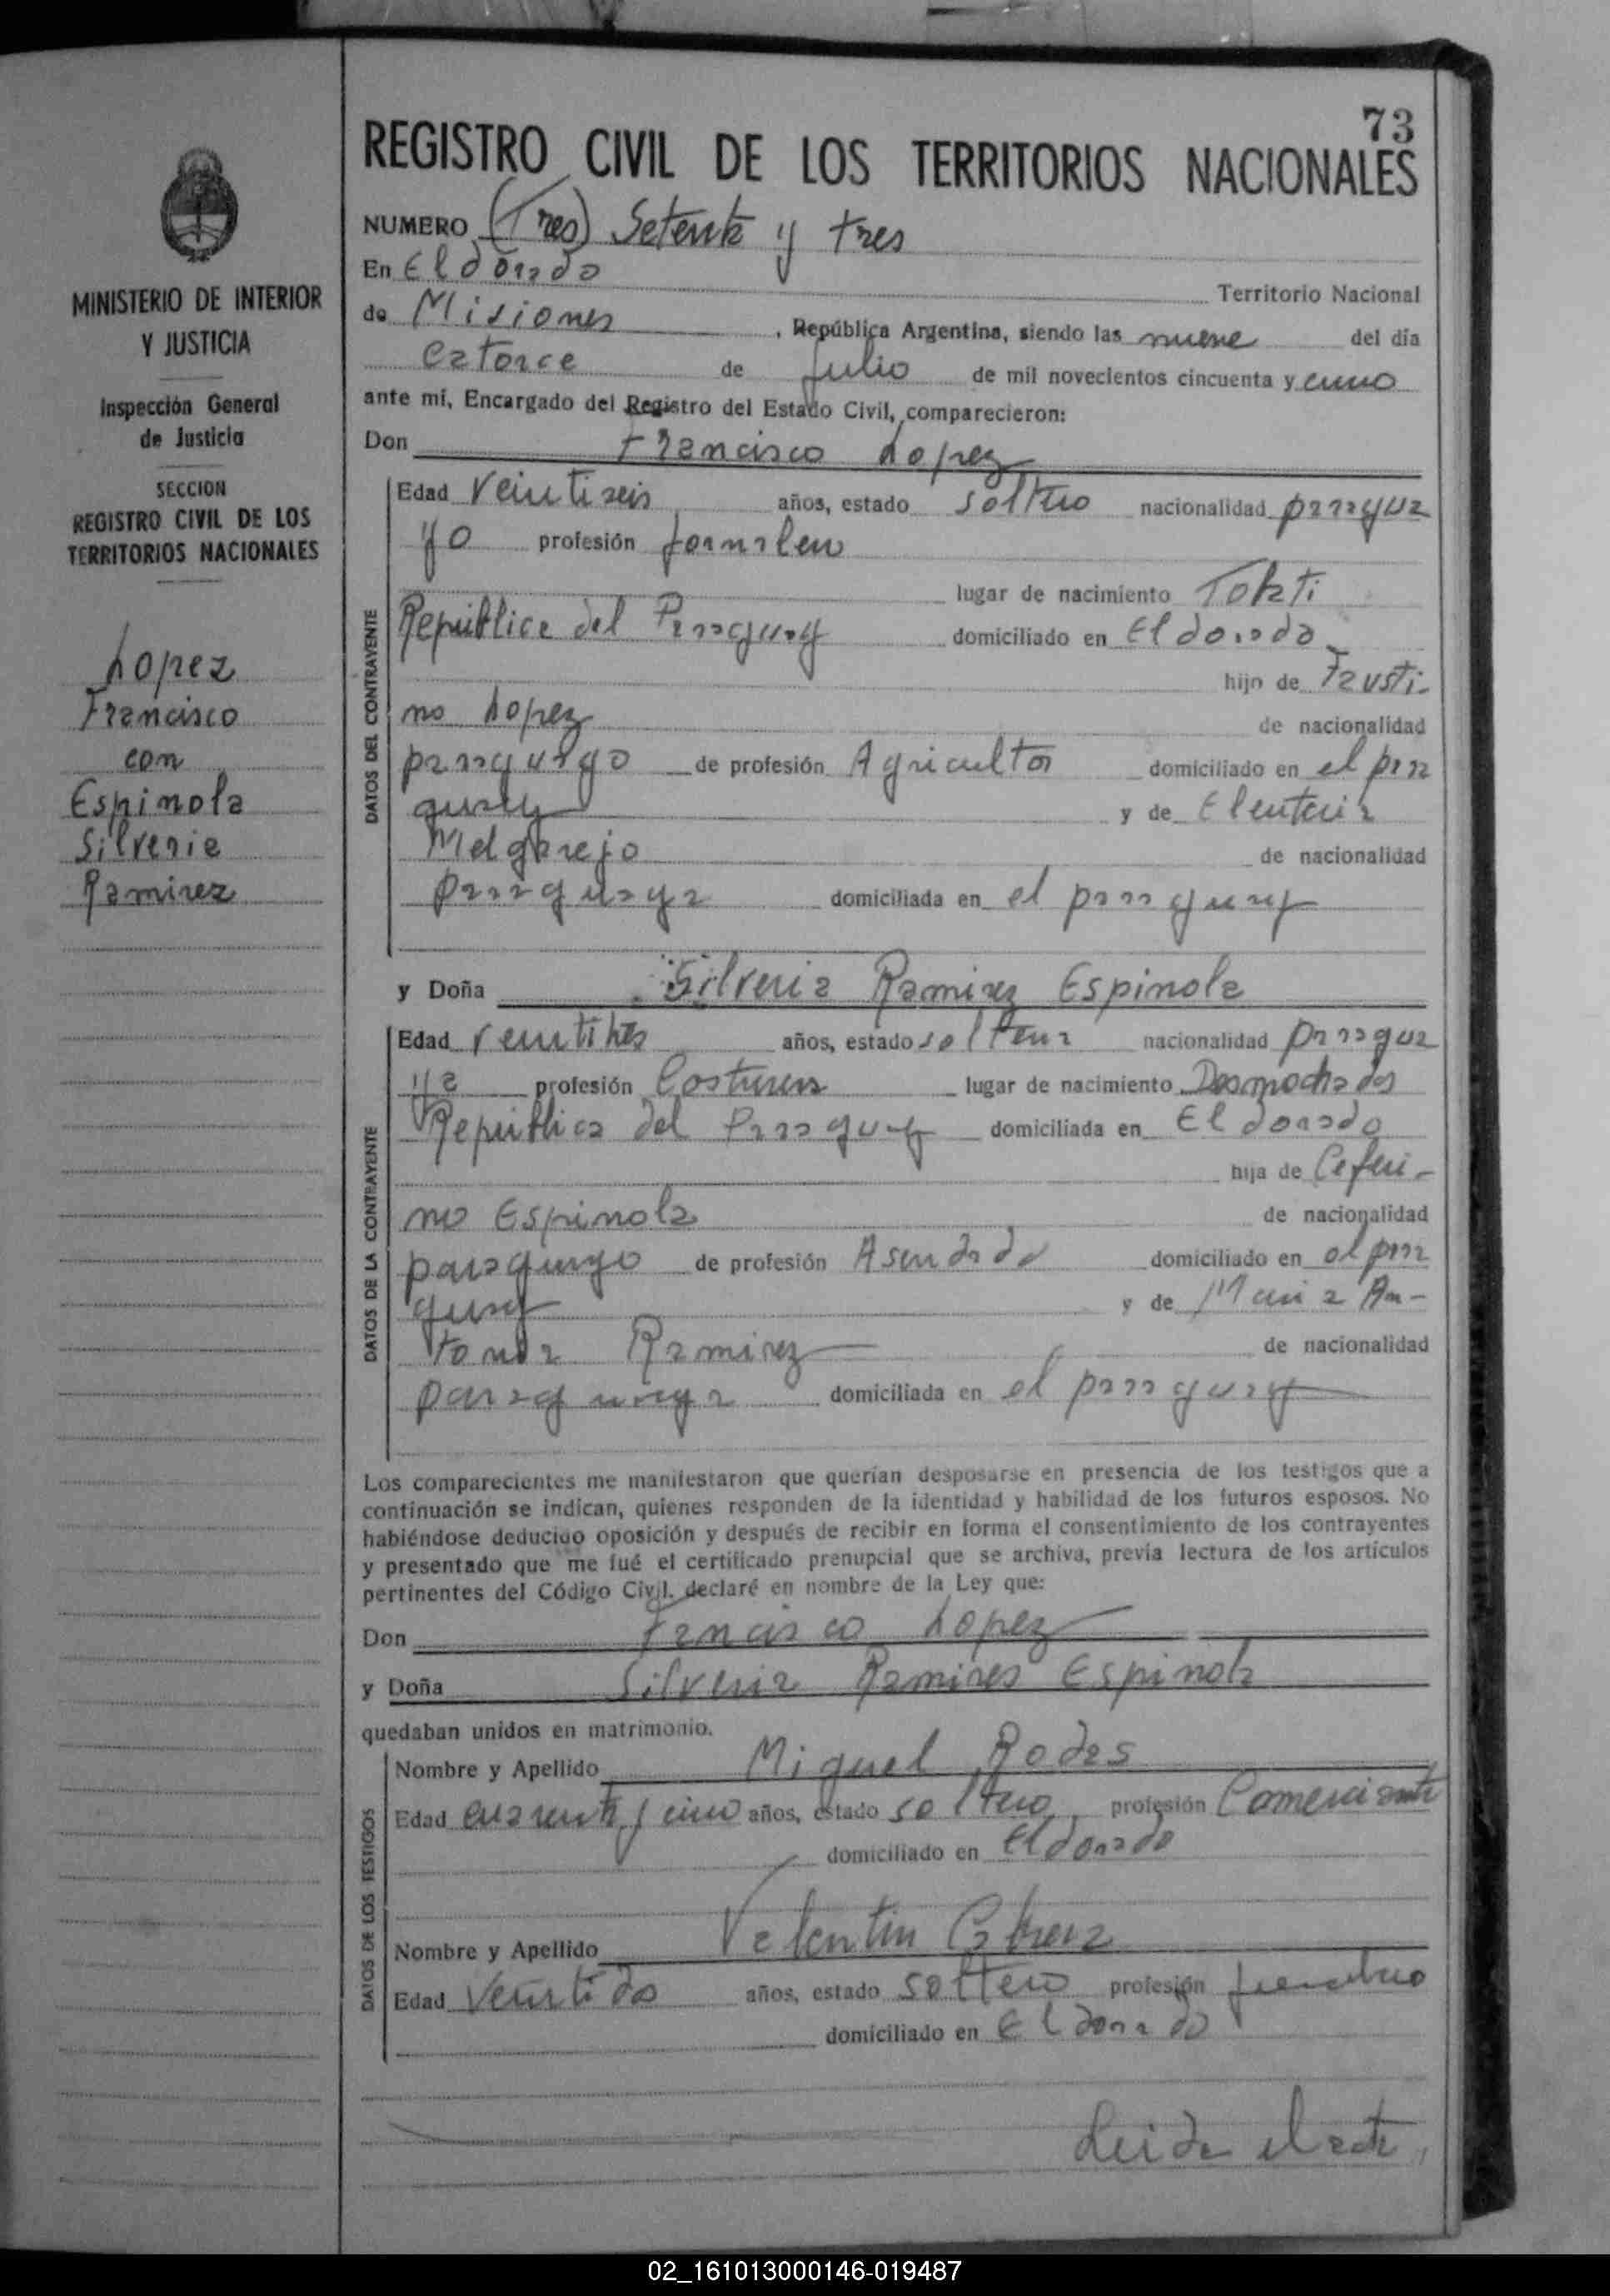 73
REGISTRO CIVIL DE LOS TERRITORIOS NACIONALES
NUMERO (Tres) Setenta y tres
En Eldorado
Territorio Nacional
de Misiones , República Argentina, siendo las nueve del día
catorce de Julio de mil novecientos cincuenta y cinco
ante mí, Encargado del Registro del Estado Civil, comparecieron:
Don Francisco Lopez
MINISTERIO DE INTERIOR
Y JUSTICIA
Inspección General
de Justicia
SECCION
REGISTRO CIVIL DE LOS
TERRITORIOS NACIONALES
Lopez
Francisco
con
Espinola
Silveria
Ramirez
DATOS DEL CONTRAYENTE
Edad veintiseis años, estado soltero nacionalidad paragua
yo profesión jornalero
lugar de nacimiento Tobati
República del Paraguay domiciliado en Eldorado
hijo de Fausti-
no Lopez de nacionalidad
paraguayo de profesión Agricultor domiciliado en el para
guay y de Eleuteria
Melgarejo de nacionalidad
paraguaya domiciliada en el paraguay
y Doña Silveria Ramirez Espinola
DATOS DE LA CONTRAYENTE
Edad veintitres años, estado soltera nacionalidad paragua
ya profesión Costurera lugar de nacimiento Desmochados
República del Paraguay domiciliada en Eldorado
hija de Ceferi-
no Espinola de nacionalidad
paraguayo de profesión domiciliado en el para
guay y de Maria An-
tonia Ramirez de nacionalidad
paraguaya domiciliada en el paraguay
Los comparecientes me manifestaron que querían desposarse en presencia de los testigos que a
continuación se indican, quienes responden de la identidad y habilidad de los futuros esposos. No
habiéndose deducido oposición y después de recibir en forma el consentimiento de los contrayentes
y presentado que me fué el certificado prenupcial que se archiva, previa lectura de los artículos
pertinentes del Código Civil. declaré en nombre de la Ley que:
Don Francisco Lopez
y Doña Silveria Ramires Espinola
quedaban unidos en matrimonio.
DATOS DE LOS TESTIGOS
Nombre y Apellido Miguel Rodas
Edad cuarenta y cinco años, estado soltero profesión Comerciante
domiciliado en Eldorado
Nombre y Apellido Valentin Cabrera
Edad Veintidos años, estado soltero profesión jornalero
domiciliado en Eldorado
Leida el acta,
02_161013000146-019487